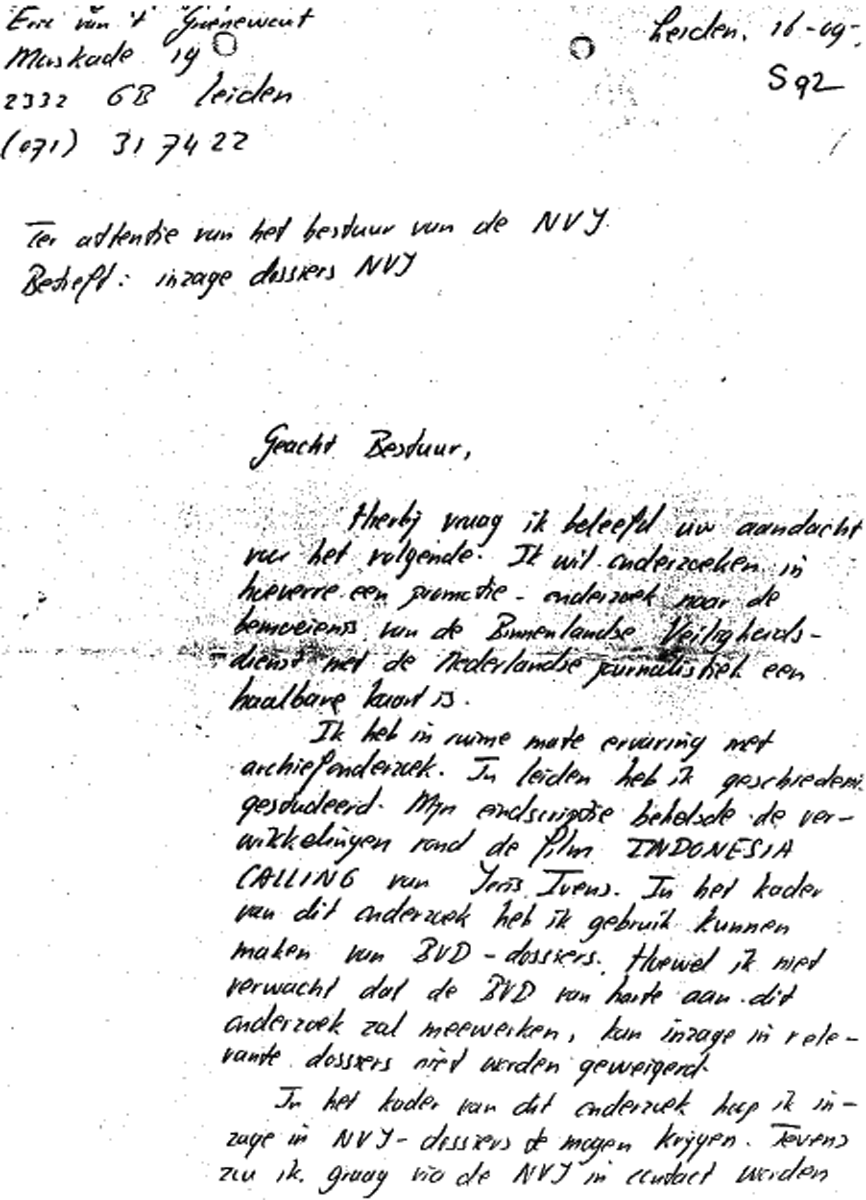 Eric van 't Groenewout Leiden, 16-09-
Muskade 19 S 92
2332 GB Leiden
(071) 31 74 22
Ter attentie van het bestuur van de NVJ.
Betreft: inzage dossiers NVJ
Geacht Bestuur,
Hierbij vraag ik beleefd uw aandacht
voor het volgende. Ik wil onderzoeken in
hoeverre een promotie-onderzoek naar de
bemoeienis van de Binnenlandse Veiligheids-
dienst met de Nederlandse journalistiek een
haalbare kaart is.
Ik heb in ruime mate ervaring met
archiefonderzoek. In Leiden heb ik geschiedenis
gestudeerd. Mijn eindscriptie behelsde de ver-
wikkelingen rond de film INDONESIA
CALLING van Joris Ivens. In het kader
van dit onderzoek heb ik gebruik kunnen
maken van BVD-dossiers. Hoewel ik niet
verwacht dat de BVD van harte aan dit
onderzoek zal meewerken, kan inzage in rele-
vante dossiers niet worden geweigerd.
In het kader van dit onderzoek hoop ik in-
zage in NVJ-dossiers te mogen krijgen. Tevens
zou ik graag via de NVJ in contact worden